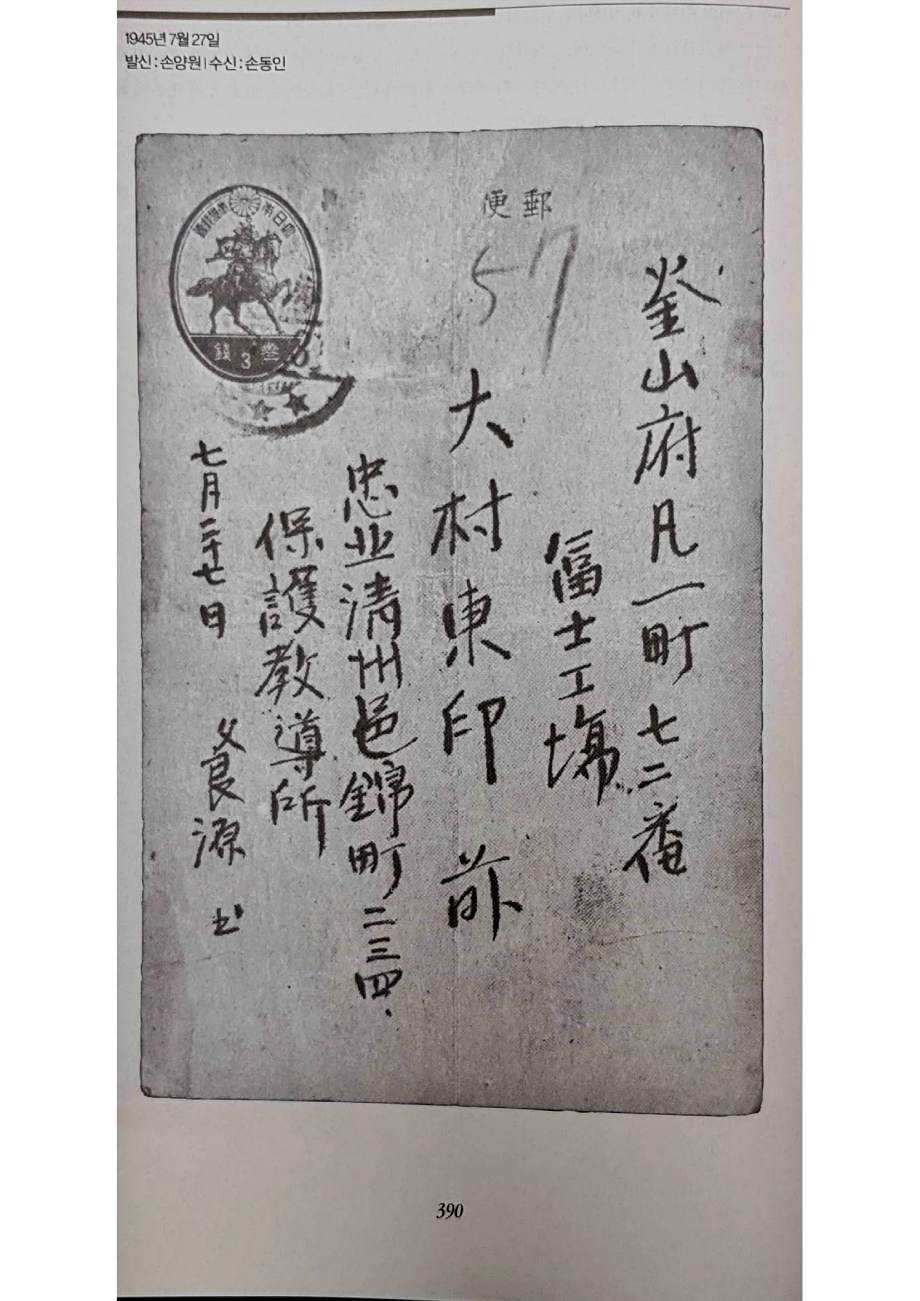 1945년 7월 27일
발신 : 손양원 | 수신 : 손동인
郵便
57
釜山府凡一町七二番
富士工場
大村東印 前
忠北清州邑錦町二三四.
保護教導所
七月二十七日 父良源 書
錢 3 叁
390